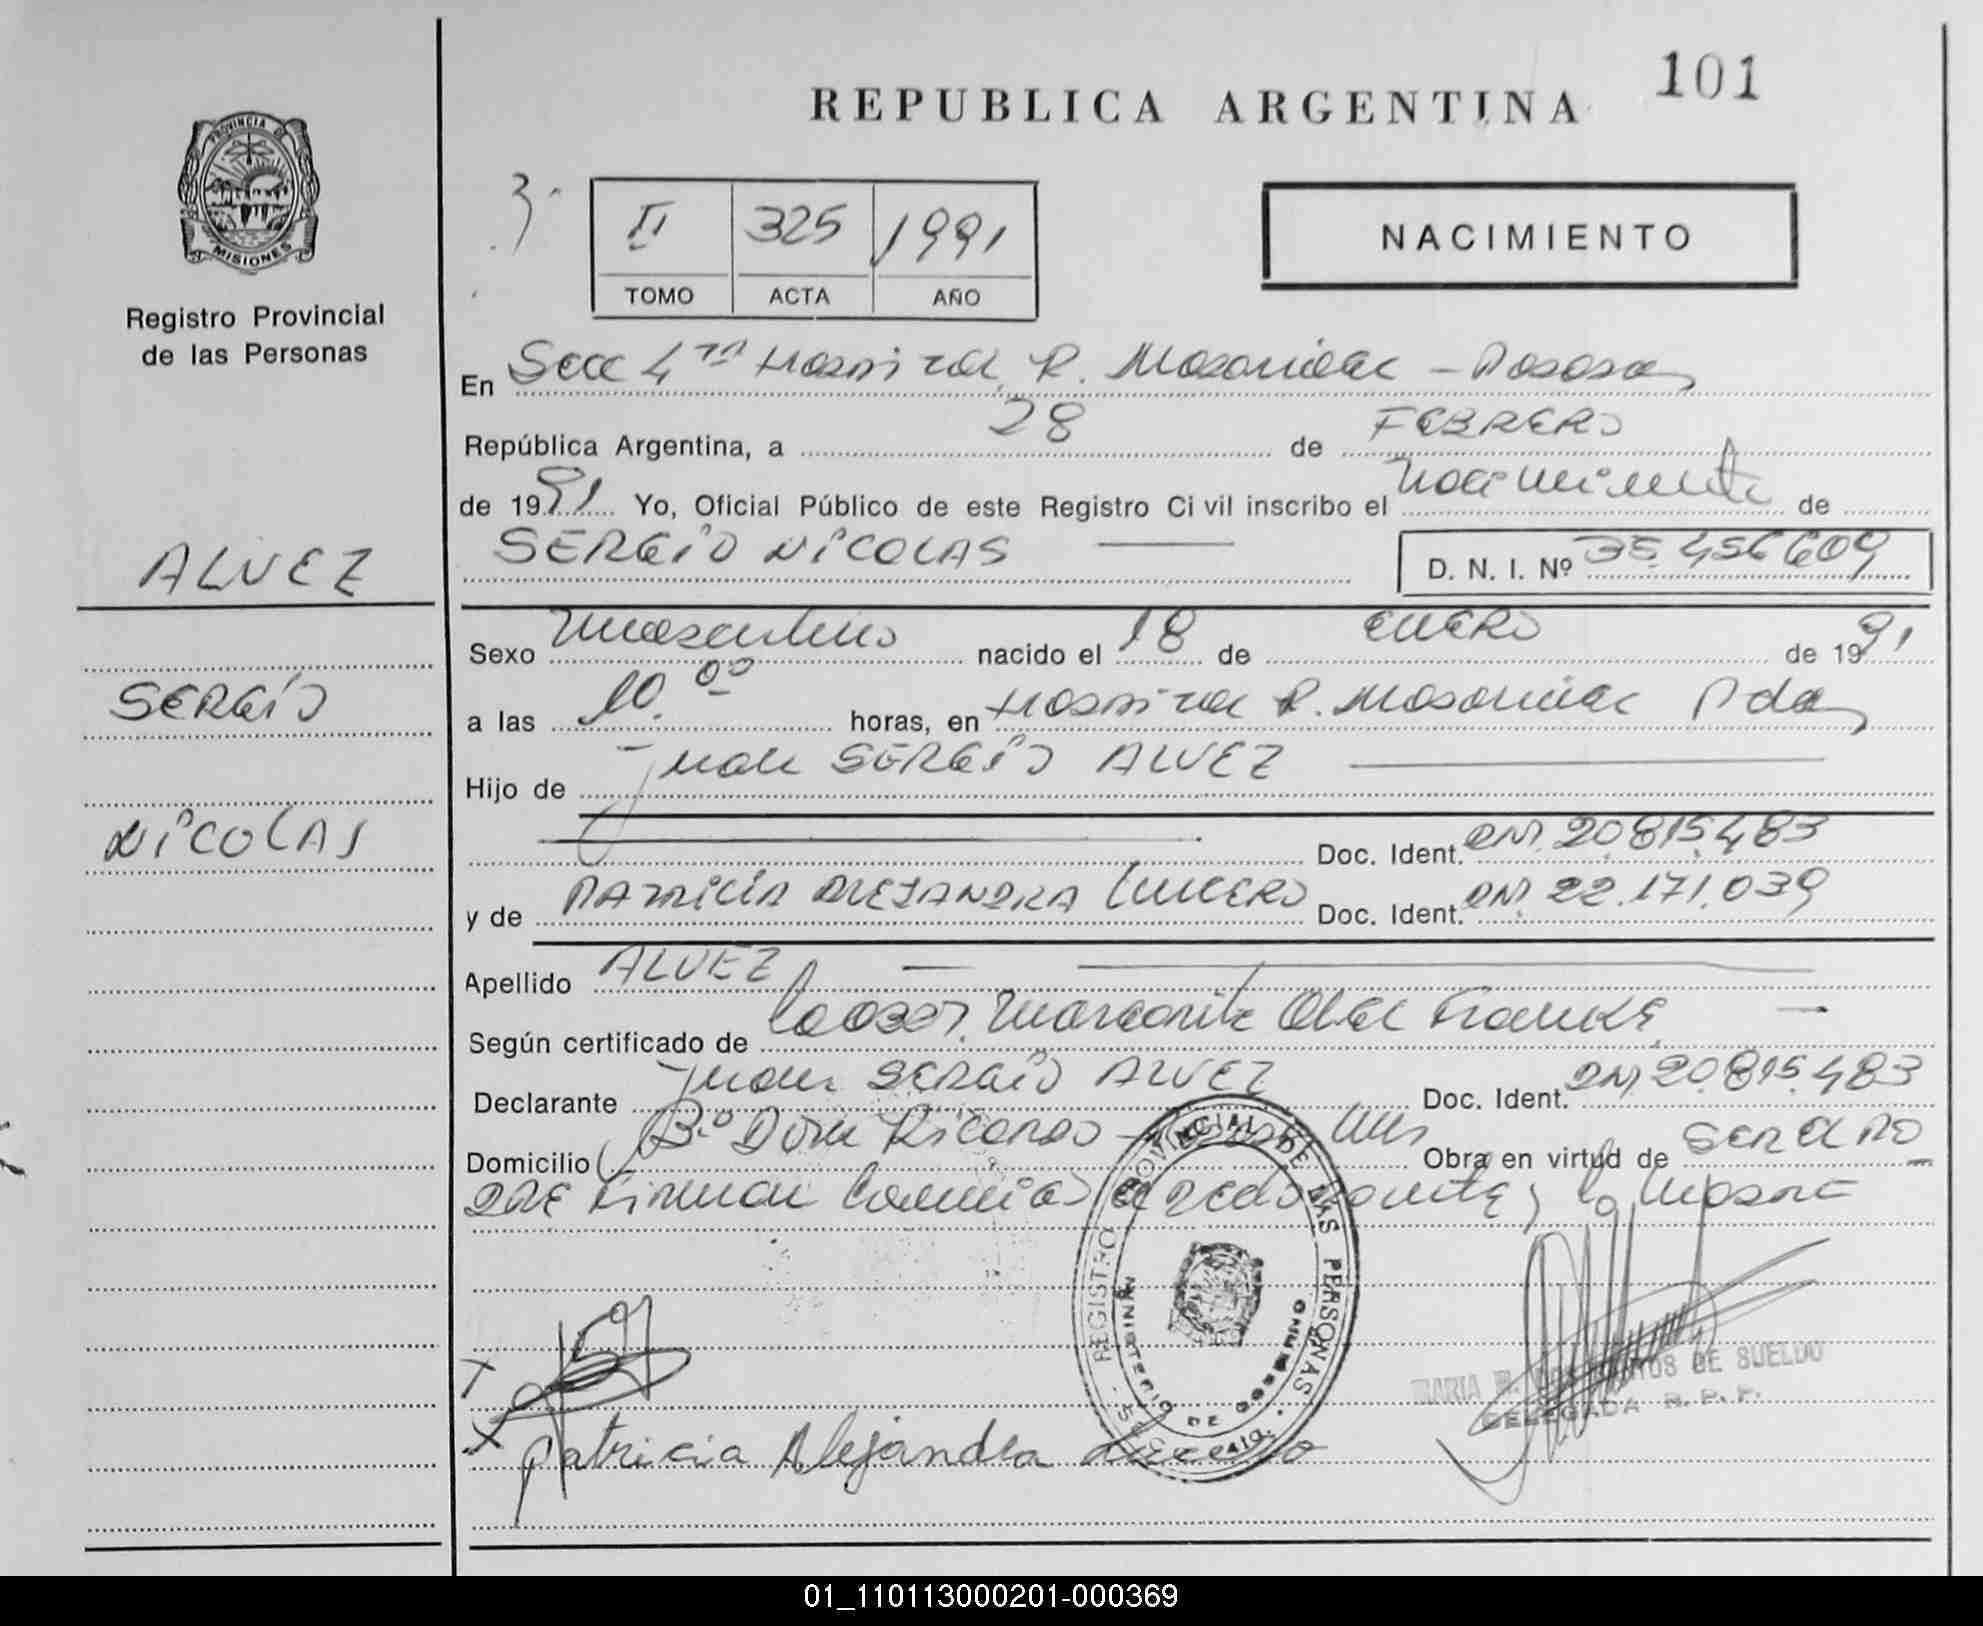 101
REPUBLICA ARGENTINA
PROVINCIA DE
MISIONES
Registro Provincial
de las Personas
3
II 325 1991
TOMO ACTA AÑO
NACIMIENTO
En Secc 4ta Hospital R. Madariaga - Posadas
República Argentina, a 28 de FEBRERO
de 1991 Yo, Oficial Público de este Registro Civil inscribo el nacimiento de
SERGIO NICOLAS D. N. I. Nº 35.456.609
ALVEZ
SERGIO
NICOLAS
Sexo masculino nacido el 18 de ENERO de 1991
a las 10.00 horas, en Hospital R. Madariaga Pdas
Hijo de Juan SERGIO ALVEZ
Doc. Ident. DNI 20.815.483
y de PATRICIA ALEJANDRA LUCERO Doc. Ident. DNI 22.171.039
Apellido ALVEZ
Según certificado de Margarita
Declarante Juan SERGIO ALVEZ Doc. Ident. DNI 20.815.483
Domicilio Bº Don Ricardo Obra en virtud de SER EL PO
DRE Firman
REGISTRO PROVINCIAL DE LAS PERSONAS
MINISTERIO DE GOBIERNO
MARIA DE SUELDO
DELEGADA R. P. P.
X
X Patricia Alejandra Lucero
01_110113000201-000369